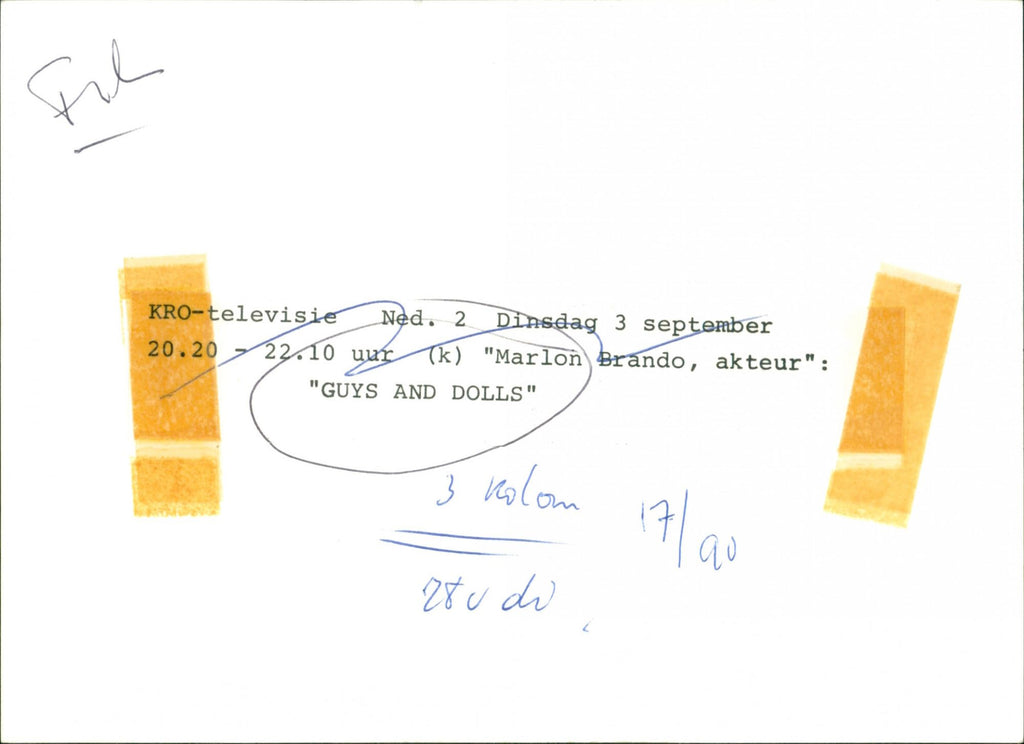 KRO-televisie Ned. 2 Dinsdag 3 september
20.20 - 22.10 uur (k) "Marlon Brando, akteur":
"GUYS AND DOLLS"
3 kolom
17/90